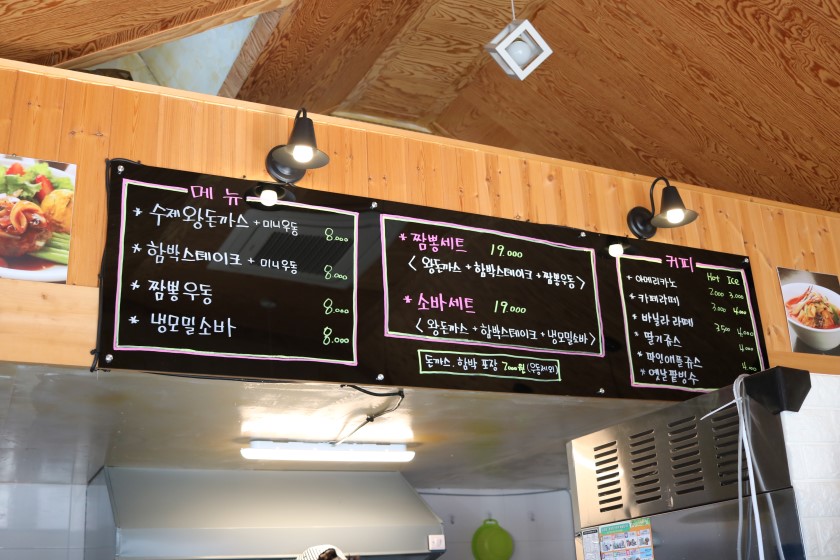 메뉴
* 수제왕돈까스 + 미니우동 8.000
* 함박스테이크 + 미니우동 8.000
* 짬뽕우동 8.000
* 냉모밀소바 8.000
* 짬뽕세트 19.000
< 왕돈까스 + 함박스테이크 + 짬뽕우동 >
* 소바세트 19.000
< 왕돈까스 + 함박스테이크 + 냉모밀소바 >
돈까스. 함박 포장 7000원 (우동제외)
커피
Hot Ice
* 아메리카노 2.000 3.000
* 카페라떼 3.000 4.000
* 바닐라 라떼 3.500 4.000
* 딸기쥬스 4.000
* 파인애플쥬스 4.000
* 옛날팥빙수